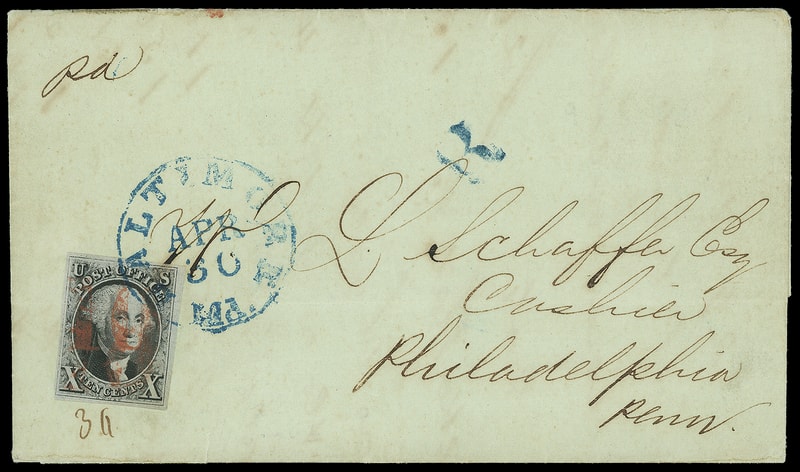 pd
BALTIMORE
Wm L. Schaffer Esq
APR
30
Md.
Cashier
U S
POST OFFICE
Philadelphia
X TEN CENTS X
Penn.